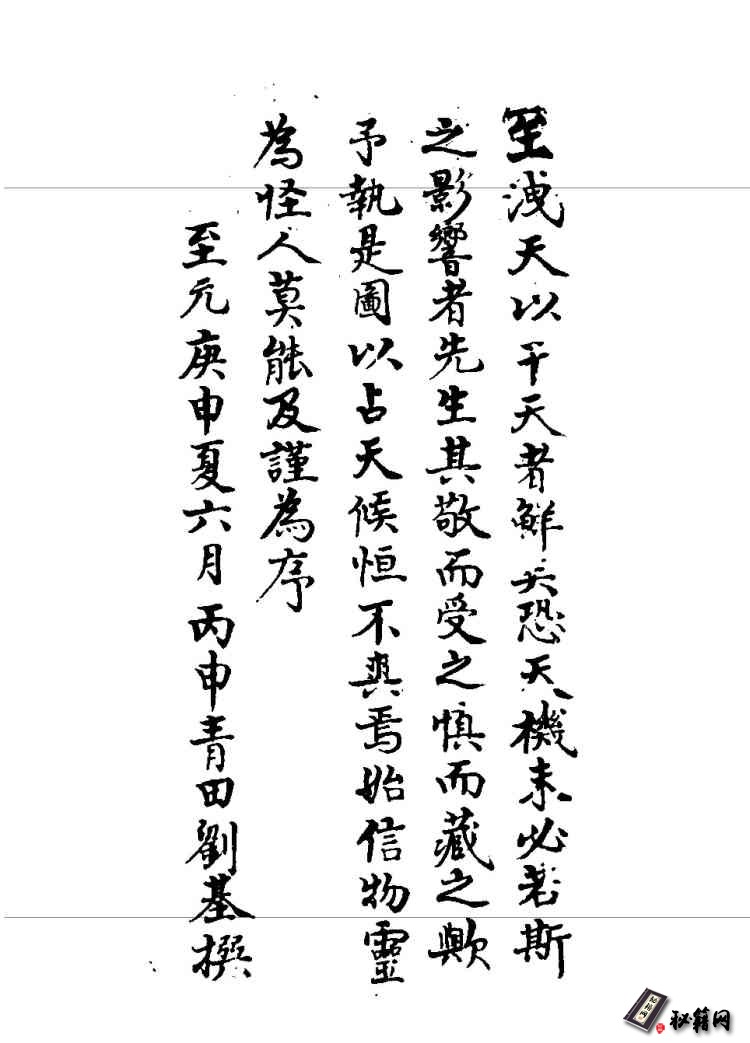 至洩天以干天者鮮矣恐天機未必若斯
之影響者先生其敬而受之慎而藏之歟
予執是圖以占天候恒不爽焉始信物靈
為怪人莫能及謹為序
至元庚申夏六月丙申青田劉基撰
秘籍网